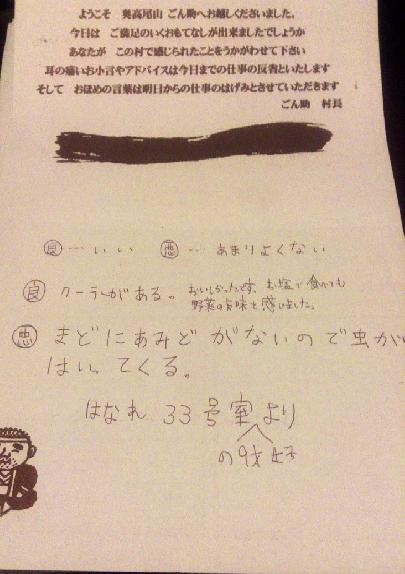 ようこそ 奥高尾山 ごん助へお越しくださいました。
今日は ご満足のいくおもてなしが出来ましたでしょうか
あなたが この村で感じられたことをうかがわせて下さい
耳の痛いお小言やアドバイスは今日までの仕事の反省といたします
そして おほめの言葉は明日からの仕事のはげみとさせていただきます
ごん助 村長
良…いい 悪…あまりよくない
良 クーラーがある。 おいしかったです。お塩で食べても
野菜の旨味を感じました。
悪 まどにあみどがないので虫が
はいってくる。
はなれ 33号室より
の9才 女子